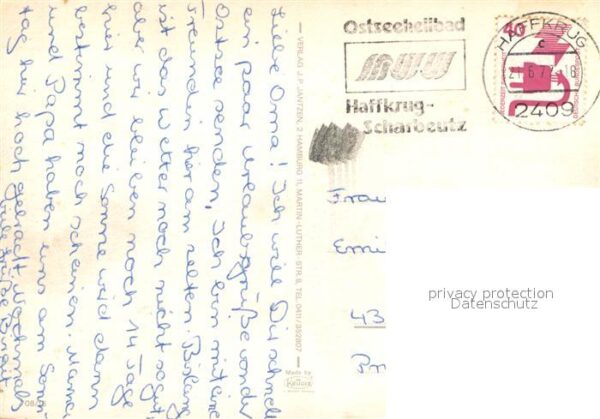 Liebe Oma! Ich will Dir schnell
ein paar Urlaubsgrüße von der
Ostsee senden, Ich bin mit
Freunden hier am selten. Bislang
ist das Wetter noch nicht so gut
aber wir bleiben noch 14 Tage
hier und die Sonne wird dann
bestimmt noch scheinen. Mama
und Papa haben uns am Sonn-
tag hier hoch gebracht.
Viele Grüße Birgit
VERLAG J.P. JANTZEN, 2 HAMBURG 11, MARTIN-LUTHER-STR. 9, TEL. 0411/352807
Made by
Krüger
Ostseeheilbad
Haffkrug-
Scharbeutz
HAFFKRUG
c
2409
40
Frau
Emi
privacy protection
Datenschutz